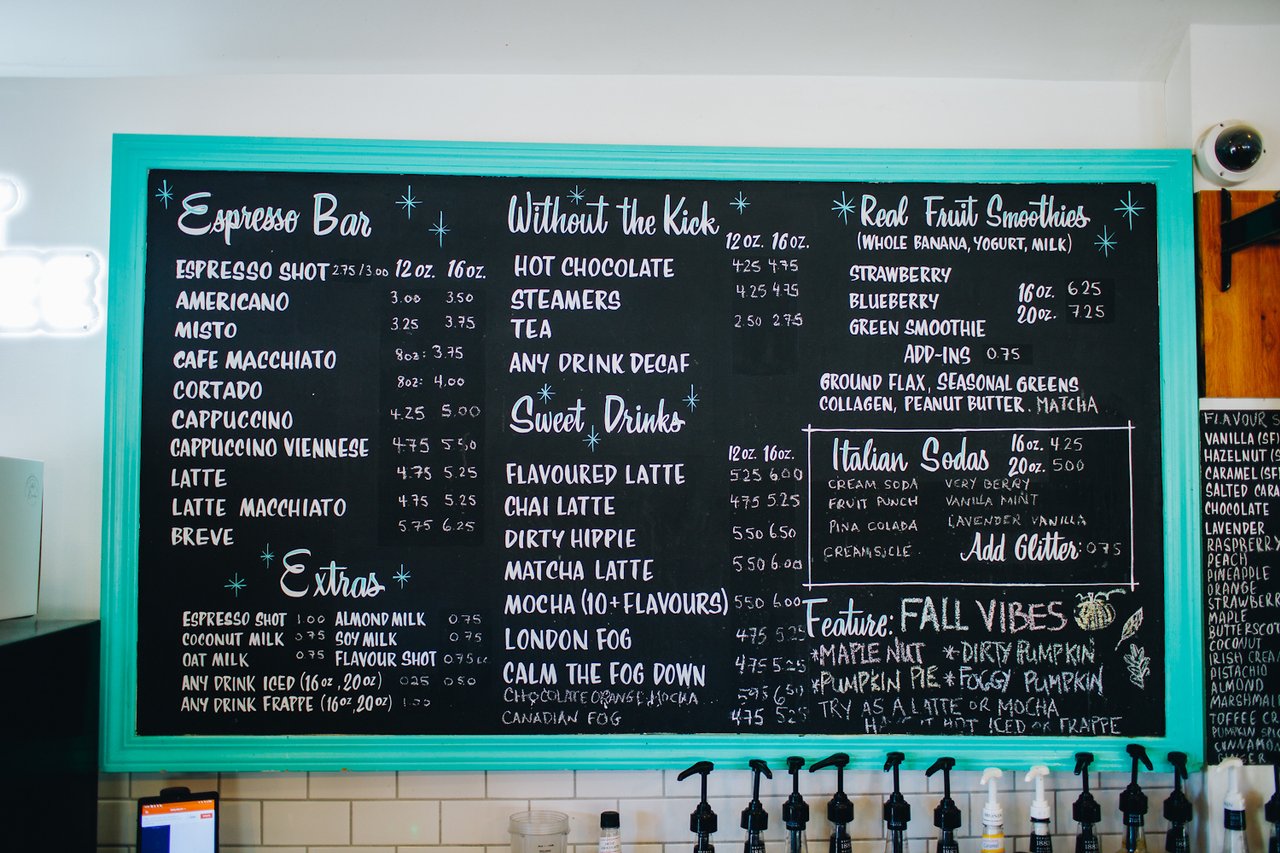 Espresso Bar
ESPRESSO SHOT 2.75/3.00 12 oz. 16 oz.
AMERICANO 3.00 3.50
MISTO 3.25 3.75
CAFE MACCHIATO 8oz: 3.75
CORTADO 8oz: 4.00
CAPPUCCINO 4.25 5.00
CAPPUCCINO VIENNESE 4.75 5.50
LATTE 4.75 5.25
LATTE MACCHIATO 4.75 5.25
BREVE 5.75 6.25
Extras
ESPRESSO SHOT 1.00 ALMOND MILK 0.75
COCONUT MILK 0.75 SOY MILK 0.75
OAT MILK 0.75 FLAVOUR SHOT 0.75
ANY DRINK ICED (16 oz, 20 oz) 0.25 0.50
ANY DRINK FRAPPE (16 oz, 20 oz)
Without the Kick
12 oz. 16 oz.
HOT CHOCOLATE 4.25 4.75
STEAMERS 4.25 4.75
TEA 2.50 2.75
ANY DRINK DECAF
Sweet Drinks
12 oz. 16 oz.
FLAVOURED LATTE 5.25 6.00
CHAI LATTE 4.75 5.25
DIRTY HIPPIE 5.50 6.50
MATCHA LATTE 5.50 6.00
MOCHA (10+ FLAVOURS) 5.50 6.00
LONDON FOG 4.75 5.25
CALM THE FOG DOWN 4.75 5.25
CHOCOLATE ORANGE MOCHA 5.95 6.50
CANADIAN FOG 4.75 5.25
Real Fruit Smoothies
(WHOLE BANANA, YOGURT, MILK)
STRAWBERRY
BLUEBERRY 16 oz. 6.25
GREEN SMOOTHIE 20 oz. 7.25
ADD-INS 0.75
GROUND FLAX, SEASONAL GREENS
COLLAGEN, PEANUT BUTTER. MATCHA
Italian Sodas 16 oz. 4.25
20 oz. 5.00
CREAM SODA VERY BERRY
FRUIT PUNCH VANILLA MINT
PINA COLADA LAVENDER VANILLA
CREAMSICLE Add Glitter: 0.75
Feature: FALL VIBES
*MAPLE NUT *DIRTY PUMPKIN
*PUMPKIN PIE *FOGGY PUMPKIN
TRY AS A LATTE OR MOCHA
IT HOT ICED OR FRAPPE
FLAVOUR S
VANILLA (SF)
HAZELNUT (S
CARAMEL (SF)
SALTED CARA
CHOCOLATE
LAVENDER
RASPBERRY
PEACH
PINEAPPLE
ORANGE
STRAWBERR
MAPLE
BUTTERSCOT
COCONUT
IRISH CREA
PISTACHIO
ALMOND
MARSHMAL
TOFFEE CR
PUMPKIN SPIC
CINNAMO
GINGER